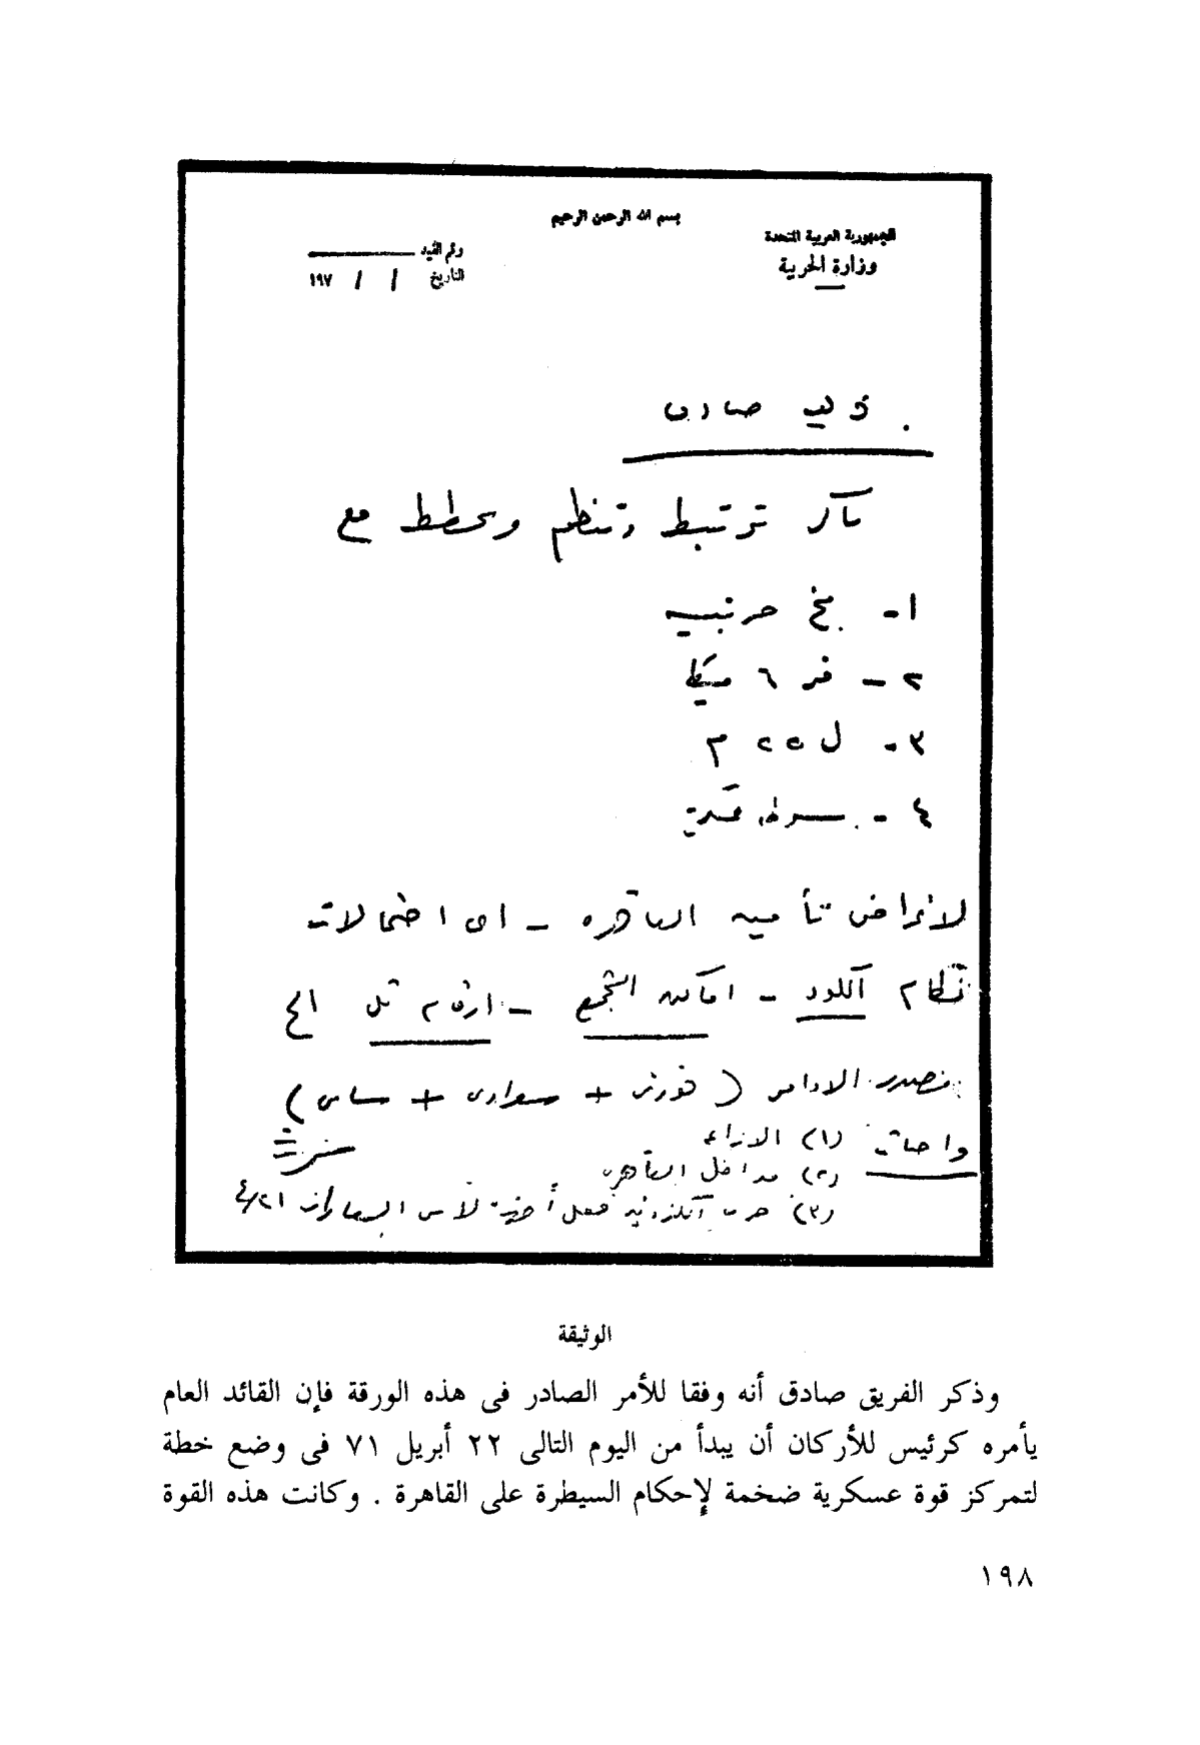 بسم الله الرحمن الرحيم
الجمهورية العربية المتحدة
وزارة الحربية
رقم القيد
التاريخ / / ١٩٧
صادق
باكر ترتبط وتنظم وتخطط مع
١-
٢ - فر ٦ ميكا
٣ - ل ٢٢ م
٤ - عسكرية
لأغراض تأمين القاهرة - أى احتمالات
نظام الكود - اماكن التجمع - ارقام تل الخ
تصدر الاوامر ( فوزى + + سامى )
واجبات (١) الاذاعة
(٢) مداخل القاهرة
(٣) ٢١/٤
الوثيقة
وذكر الفريق صادق أنه وفقا للأمر الصادر فى هذه الورقة فإن القائد العام
يأمره كرئيس للأركان أن يبدأ من اليوم التالى ٢٢ أبريل ٧١ فى وضع خطة
لتمركز قوة عسكرية ضخمة لإحكام السيطرة على القاهرة . وكانت هذه القوة
١٩٨